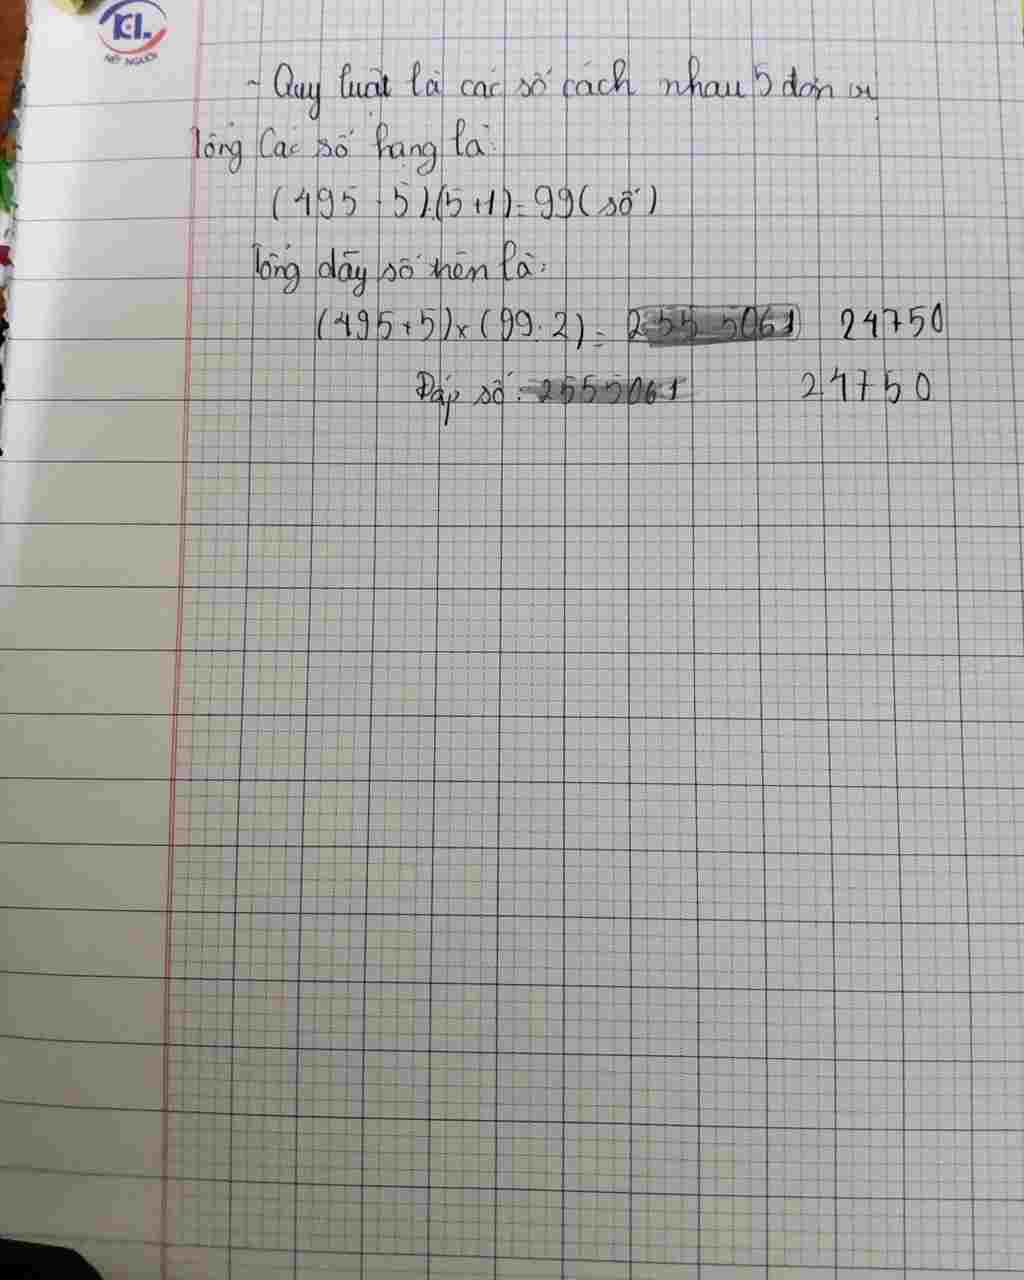 KL
NÉT NGƯỜI
- Quy luật là các số cách nhau 5 đơn vị
Tổng các số hạng là:
(495 - 5):(5+1) = 99 (số)
Tổng dãy số trên là:
(495+5)×(99:2) = 255 5061 24750
Đáp số: 2555061 24750